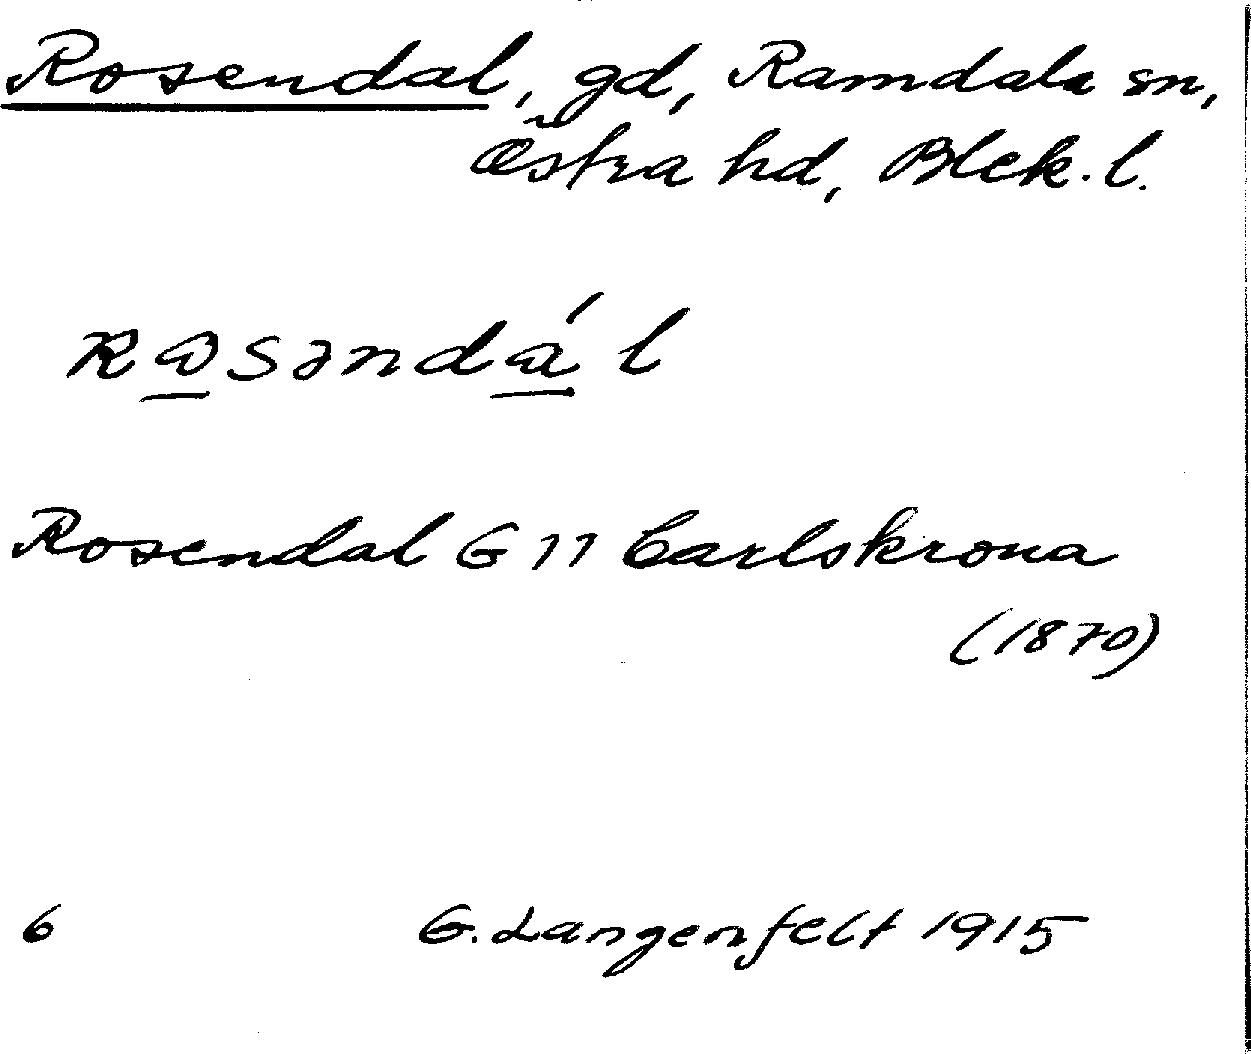 Rosendal, gd, Ramdala sn,
Östra hd, Blek. l.
Rosendal G 11 Carlskrona
(1870)
6 G. Langenfelt 1915